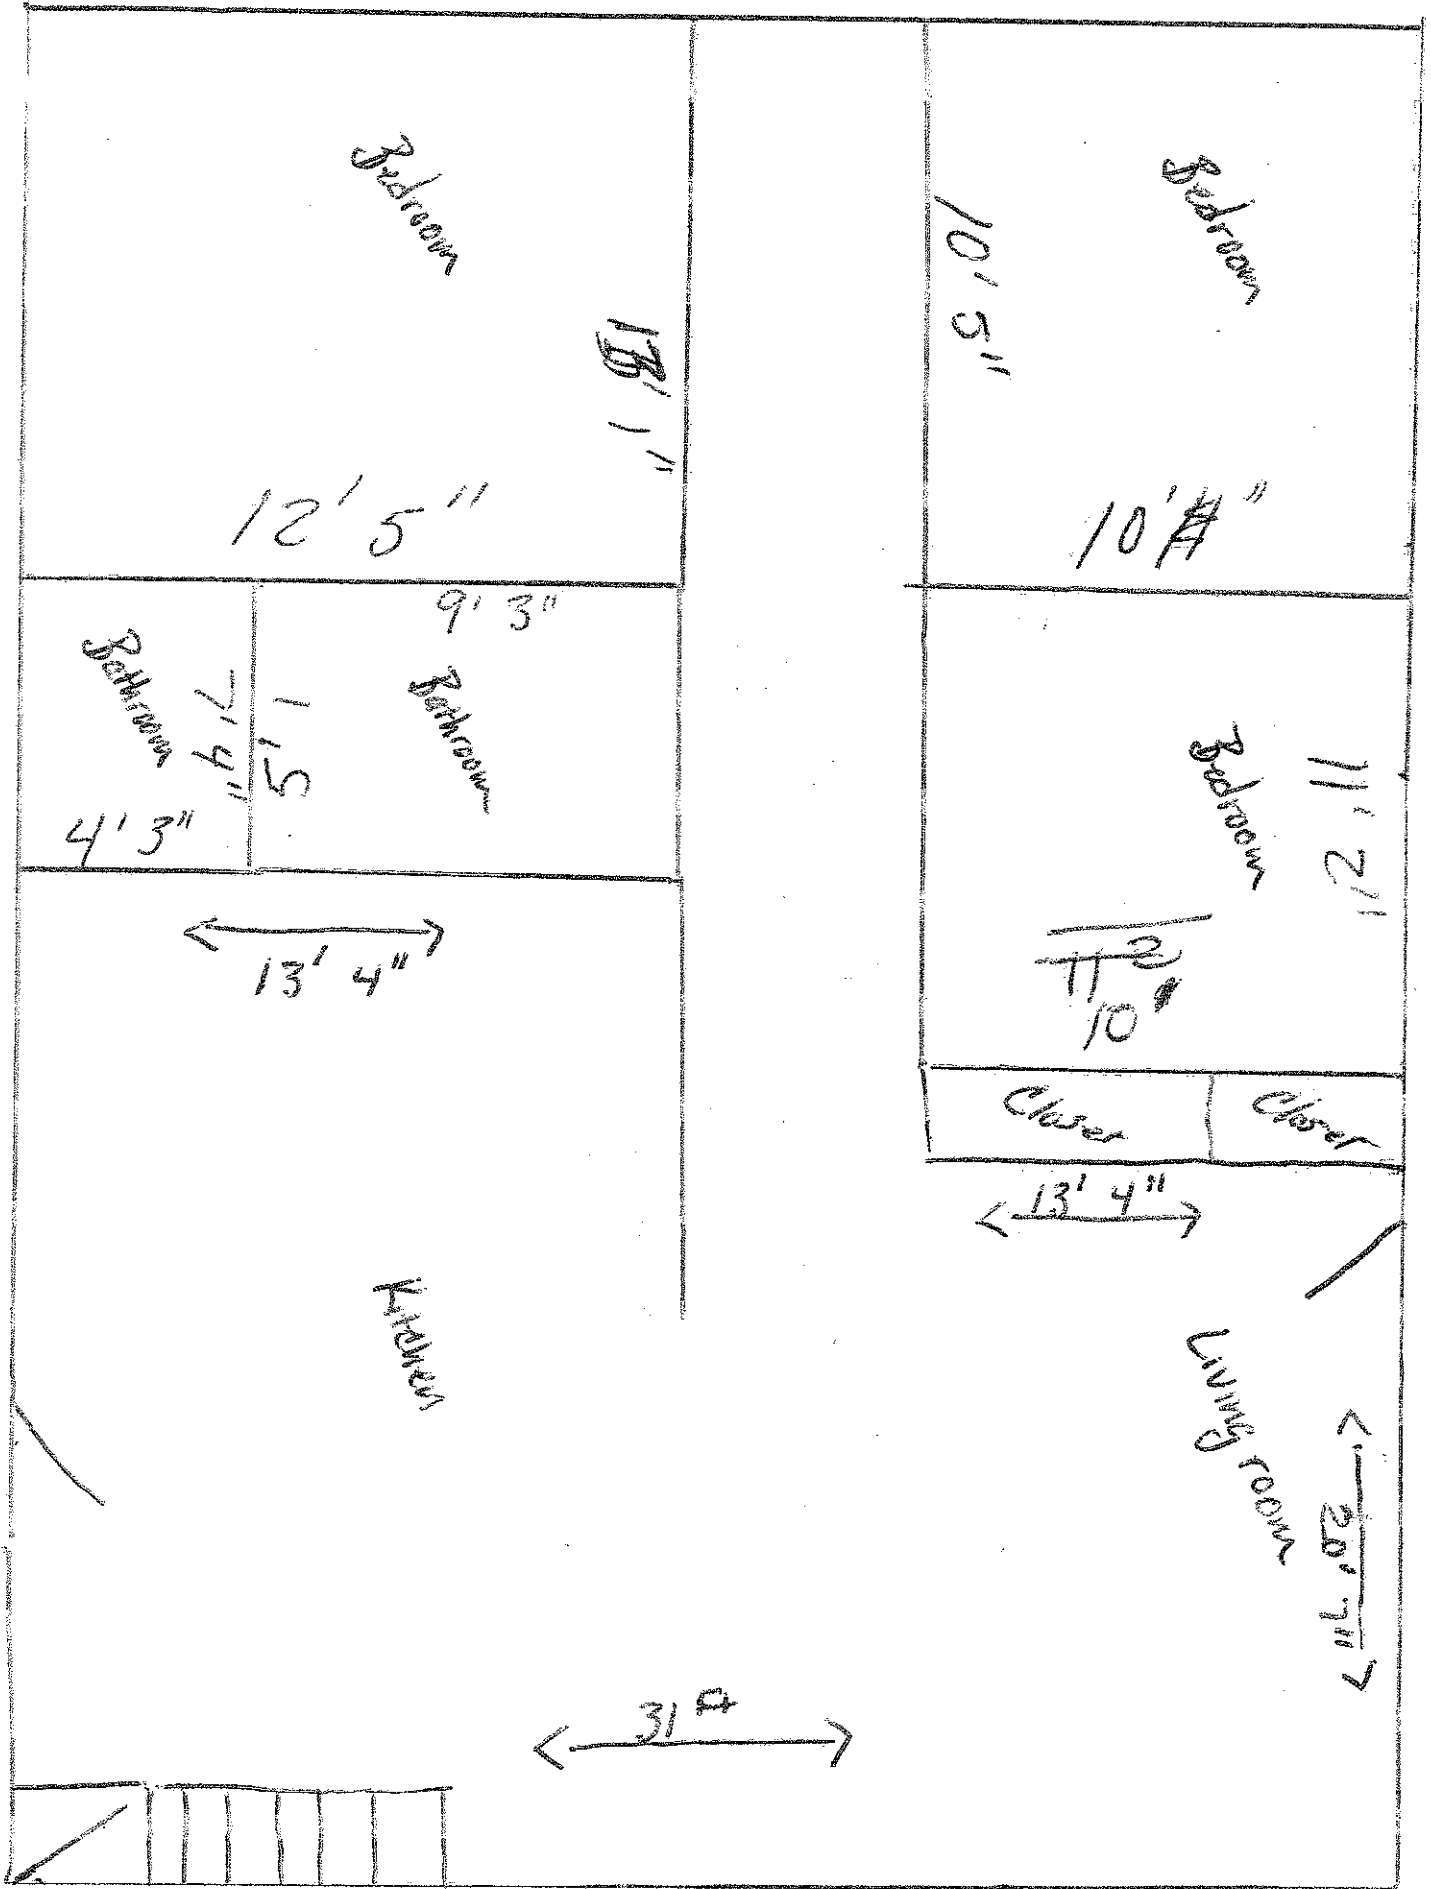 Bedroom
Bedroom
10' 5"
1" 
12' 5"
10' "
9' 3"
Bathroom
7' 4"
5' 1
Bathroom
4' 3"
Bedroom
11' 2"
13' 4"
11 2
10'
Closet
Closet
13' 4"
Kitchen
Living room
20' 7"
31 ft